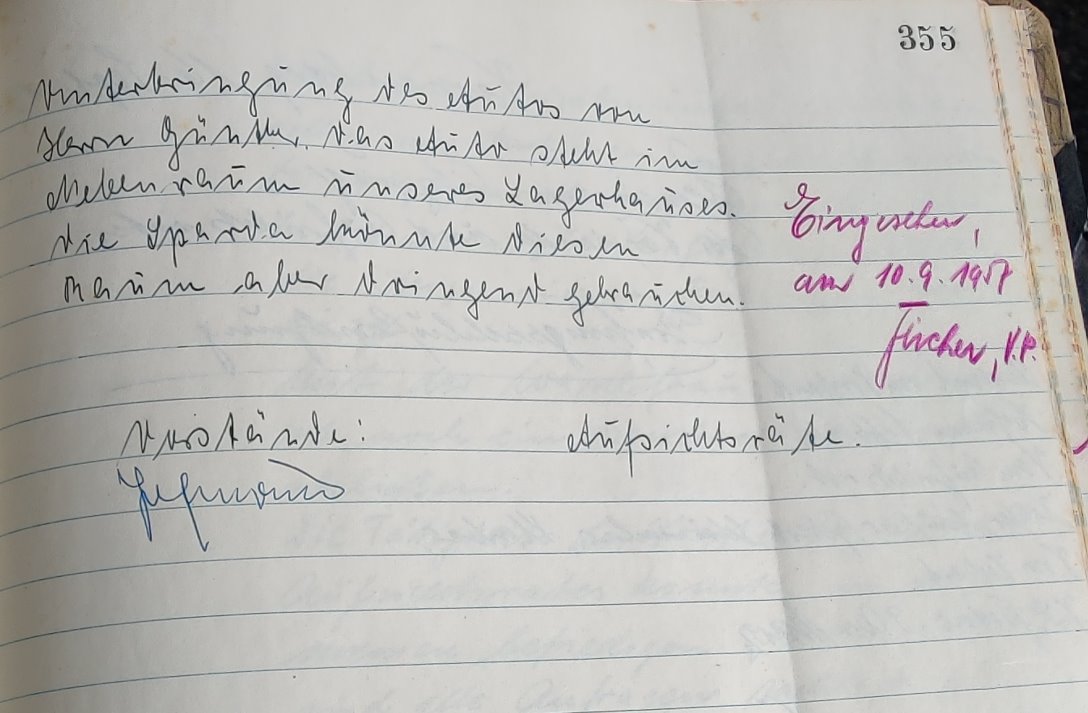 355
Unterbringung des Autos von
Herrn Günther. Das Auto steht im
Nebenraum unseres Lagerhauses.
Die Sparda könnte diesen
Raum aber dringend gebrauchen.
Eingesehen,
am 10.9.1957
Fischer, V.P.
Vorstände:
Aufsichtsräte.